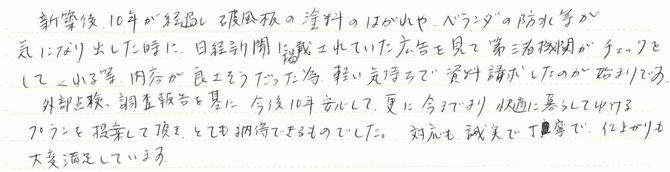 新築後、10年が経過して破風板の塗料のはがれや、ベランダの防水等が
気になり出した時に、日経新聞に掲載されていた広告を見て第三者機関がチェックを
してくれる等、内容が良さそうだった為、軽い気持ちで資料請求したのが始まりです。
外部点検、調査報告を基に今後10年安心して、更に今までより快適に暮らしてゆける
プランを提案して頂き、とても納得できるものでした。対応も誠実で丁寧で、仕上がりも
大変満足しています。